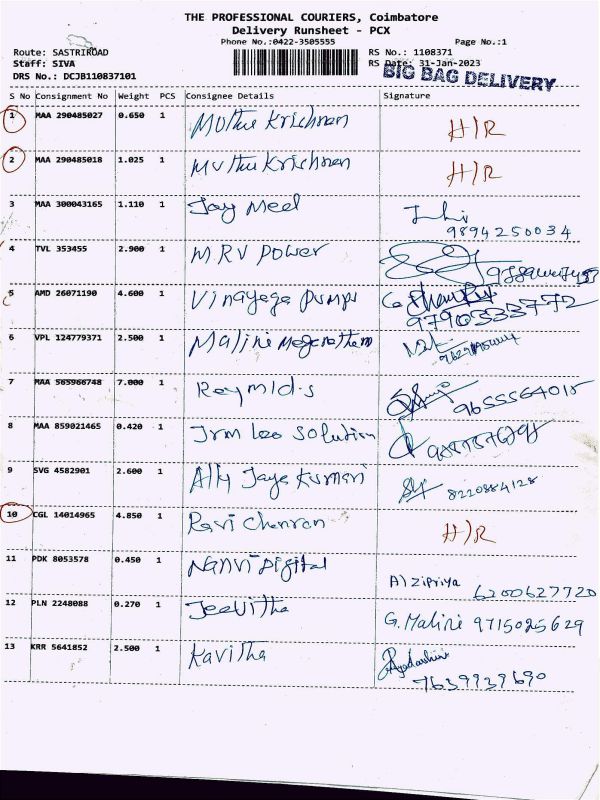 THE PROFESSIONAL COURIERS, Coimbatore
Delivery Runsheet - PCX
Phone No.:0422-3505555 Page No.:1
Route: SASTRIROAD RS No.: 1108371
Staff: SIVA RS Date: 31-Jan-2023
DRS No.: DCJB110837101 BIG BAG DELIVERY
S No Consignment No Weight PCS Consignee Details Signature
1 MAA 290485027 0.650 1 Muthu Krishnan H/R
2 MAA 290485018 1.025 1 Muthu Krishnan H/R
3 MAA 300043165 1.110 1 Jay Meel
9894250034
4 TVL 353455 2.900 1 M.R.V Power
5 AMD 26071190 4.600 1 Vinayaga Pumps
9790333772
6 VPL 124779371 2.500 1 Malini
7 MAA 565966748 7.000 1 Reymld.s 9655564015
8 MAA 859021465 0.420 1 Jrm Leo Solution
9 SVG 4582901 2.600 1 Ally Jaya Kumari 8220884128
10 CGL 14014965 4.850 1 Ravi H/R
11 PDK 8053578 0.450 1 Nanvi Digital
6200627720
12 PLN 2248088 0.270 1 Jeevitha G. Malini 9715025629
13 KRR 5641852 2.500 1 Kavitha
7639939690